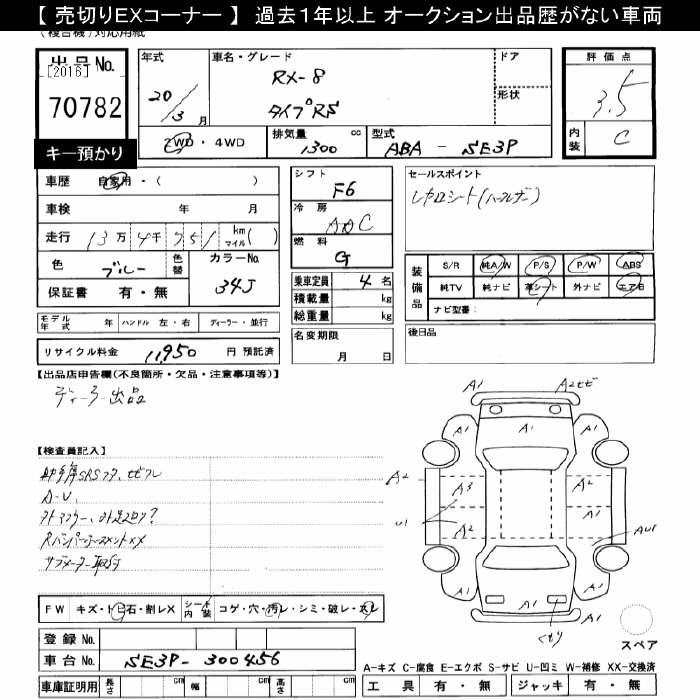 【 売切りEXコーナー 】 過去1年以上 オークション出品歴がない車両
(複合機)対応用紙
出品No.
[2016]
70782
キー預かり
年式
20/3月
車名・グレード
RX-8
タイプRS
ドア
形状
2WD・4WD
排気量 1300 cc
型式 ABA - SE3P
評価点
3.5
内装 C
車歴 自家用・( )
車検 年 月
走行 13万4千751 km マイル( )
色 ブルー 色替
カラーNo. 34J
保証書 有・無
シフト
F6
冷房
AAC
燃料
G
乗車定員 4名
積載量 kg
総重量 kg
名変期限
月 日
セールスポイント
レカロシート(ハーフレザー)
装備品
S/R 純A/W P/S P/W ABS
純TV 純ナビ 革シート 外ナビ エアB
ナビ型番:
後日品
モデル年式 年 ハンドル 左・右 ディーラー・並行
リサイクル料金 11,950 円 預託済
【出品店申告欄(不良箇所・欠品・注意事項等)】
ディーラー出品
【検査員記入】
A-U、
サブメーター取付
FW キズ・トビ石・割レX
シート内装 コゲ・穴・汚レ・シミ・破レ・スレ
登録No.
車台No. SE3P-300456
車庫証明用 長さ cm 幅 cm 高さ cm
A1
A2ヒビ
A1
A1
A1
A2
A3
A1
U1
A2
A1
AU1
A1
A1
A1
くもり
スペア
A-キズ C-腐食 E-エクボ S-サビ U-凹ミ W-補修 XX-交換済
工具 有・無 ジャッキ 有・無